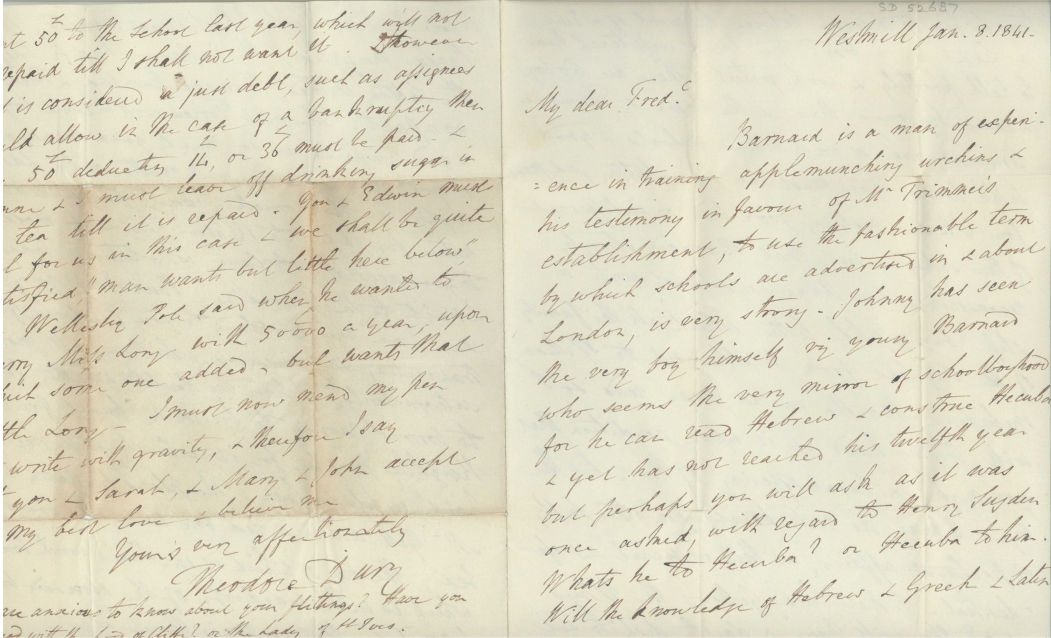 50£ to the School last year, which will not
repaid till I shall not want it. I however
is considered a just debt, such as assignees
allow in the case of a bankruptcy then
50£ deducting 14£, or 36£ must be paid - &
must leave off drinking sugar in
tea till it is repaid. You & Edwin must
for us in this case & we shall be quite
"man wants but little here below",
Wellesley Pole said when he wanted to
Miss Long with 50000 a year, upon
some one added - but wants that
Long - I must now mend my pen
write with gravity, & therefore I say
you & Sarah, & Mary & John accept
my best love & believe me
Yours very affectionately
Theodore Dury
anxious to know about your flittings? Have you
or the Lady of St Ives.
SD 52687
Westmill Jan. 8. 1841.
My dear Fred.c
Barnard is a man of experi-
=ence in training applemunching urchins &
his testimony in favour of Mr Trimmers
establishment, to use the fashionable term
by which schools are advertised in & about
London, is very strong - Johnny has seen
the very boy himself viz young Barnard
who seems the very mirror of schoolboyhood
for he can read Hebrew & construe Hecuba
& yet has not reached his twelfth year
but perhaps you will ask as it was
once asked, with regard to Henry Sugden
Whats he to Hecuba? or Hecuba to him.
Will the knowledge of Hebrew & Greek & Latin